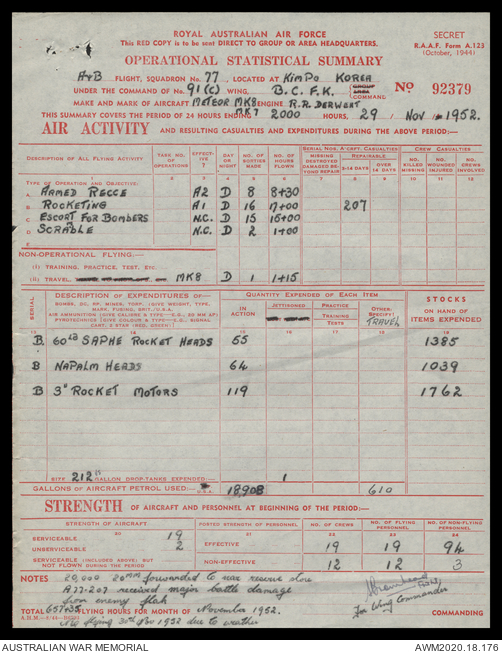 ROYAL AUSTRALIAN AIR FORCE
This RED COPY is to be sent DIRECT TO GROUP OR AREA HEADQUARTERS.
SECRET
R.A.A.F. Form A.123
(October, 1944)
OPERATIONAL STATISTICAL SUMMARY
A+B FLIGHT, SQUADRON No. 77, LOCATED AT KIMPO KOREA
UNDER THE COMMAND OF No. 91 (C) WING, B.C.F.K. GROUP AREA COMMAND.
No 92379
MAKE AND MARK OF AIRCRAFT METEOR MK8 ENGINE R.R. DERWENT
MK7
THIS SUMMARY COVERS THE PERIOD OF 24 HOURS ENDING 2000 HOURS, 29 / NOV / 1952.
AIR ACTIVITY AND RESULTING CASUALTIES AND EXPENDITURES DURING THE ABOVE PERIOD:—
DESCRIPTION OF ALL FLYING ACTIVITY
TASK NO. OF OPERATIONS
EFFECTIVE ?
DAY OR NIGHT
NO. OF SORTIES MADE
NO. OF HOURS FLOWN
SERIAL NOS. A'CRFT. CASUALTIES
MISSING DESTROYED DAMAGED BEYOND REPAIR
REPAIRABLE
2-14 DAYS
OVER 14 DAYS
CREW CASUALTIES
NO. KILLED MISSING
NO. WOUNDED INJURED
NO. CREWS INVOLVED
TYPE OF OPERATION AND OBJECTIVE:
A ARMED RECCE A2 D 8 8+30
B ROCKETING A1 D 16 17+00 207
C ESCORT FOR BOMBERS N.C. D 15 15+00
D SCRABLE N.C. D 2 1+00
E
NON-OPERATIONAL FLYING:—
(I) TRAINING, PRACTICE, TEST, ETC.
(II) TRAVEL, MK8 D 1 1+15
SERIAL
DESCRIPTION OF EXPENDITURES OF—
BOMBS, DC, RP, MINES, TORP. (GIVE WEIGHT, TYPE, MARK, FUSING, BRIT./U.S.A.
AIR AMMUNITION (GIVE CALIBRE & TYPE—E.G., 20 MM AP)
PYROTECHNICS (GIVE COLOUR & TYPE—E.G., SIGNAL CART. 2 STAR (RED, GREEN).
QUANTITY EXPENDED OF EACH ITEM
IN ACTION
JETTISONED
PRACTICE
TRAINING
TESTS
OTHER: SPECIFY
TRAVEL
STOCKS
ON HAND OF ITEMS EXPENDED
B 60 LB SAPHE ROCKET HEADS 55 1385
B NAPALM HEADS 64 1039
B 3" ROCKET MOTORS 119 1762
SIZE 212" GALLON DROP-TANKS EXPENDED— 1
GALLONS OF AIRCRAFT PETROL USED:— 18,908 610
STRENGTH OF AIRCRAFT AND PERSONNEL AT BEGINNING OF THE PERIOD:—
STRENGTH OF AIRCRAFT
POSTED STRENGTH OF PERSONNEL
NO. OF CREWS
NO. OF FLYING PERSONNEL
NO. OF NON-FLYING PERSONNEL
SERVICEABLE 19
UNSERVICEABLE 2
EFFECTIVE 19 19 94
SERVICEABLE (INCLUDED ABOVE) BUT NOT FLOWN DURING THE PERIOD
NON-EFFECTIVE 12 12 3
NOTES 20,000 20mm forwarded to war reserve store
A77-207 received major battle damage
from enemy flak
TOTAL 657+35 FLYING HOURS FOR MONTH OF November 1952.
No flying 30th Nov 1952 due to weather
For Wing Commander
COMMANDING
AUSTRALIAN WAR MEMORIAL
AWM2020.18.176